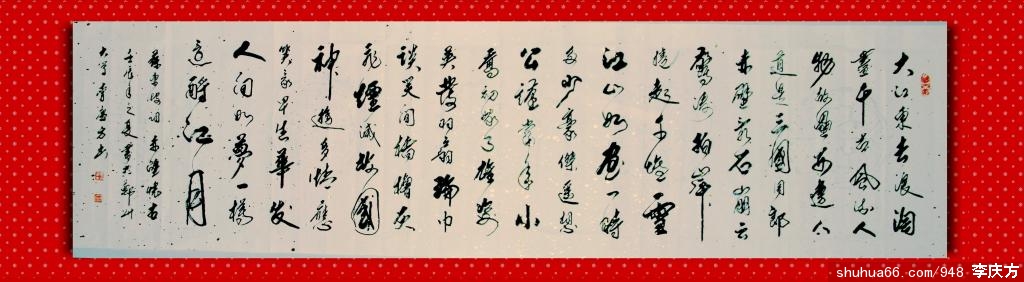 大江東去浪淘
盡千古風流人
物故壘西邊人
道是三國周郎
赤壁亂石崩云
驚濤拍岸
捲起千堆雪
江山如畫一時
多少豪傑遥想
公謹當年小
喬初嫁了雄姿
英發羽扇綸巾
談笑間檣櫓灰
飛煙滅故國
神遊多情應
笑我早生華发
人间如夢一樽
還酹江月
蘇東坡詞 赤壁懷古
壬辰年之夏書於鄭州
shuhua66.com/948 李庆方